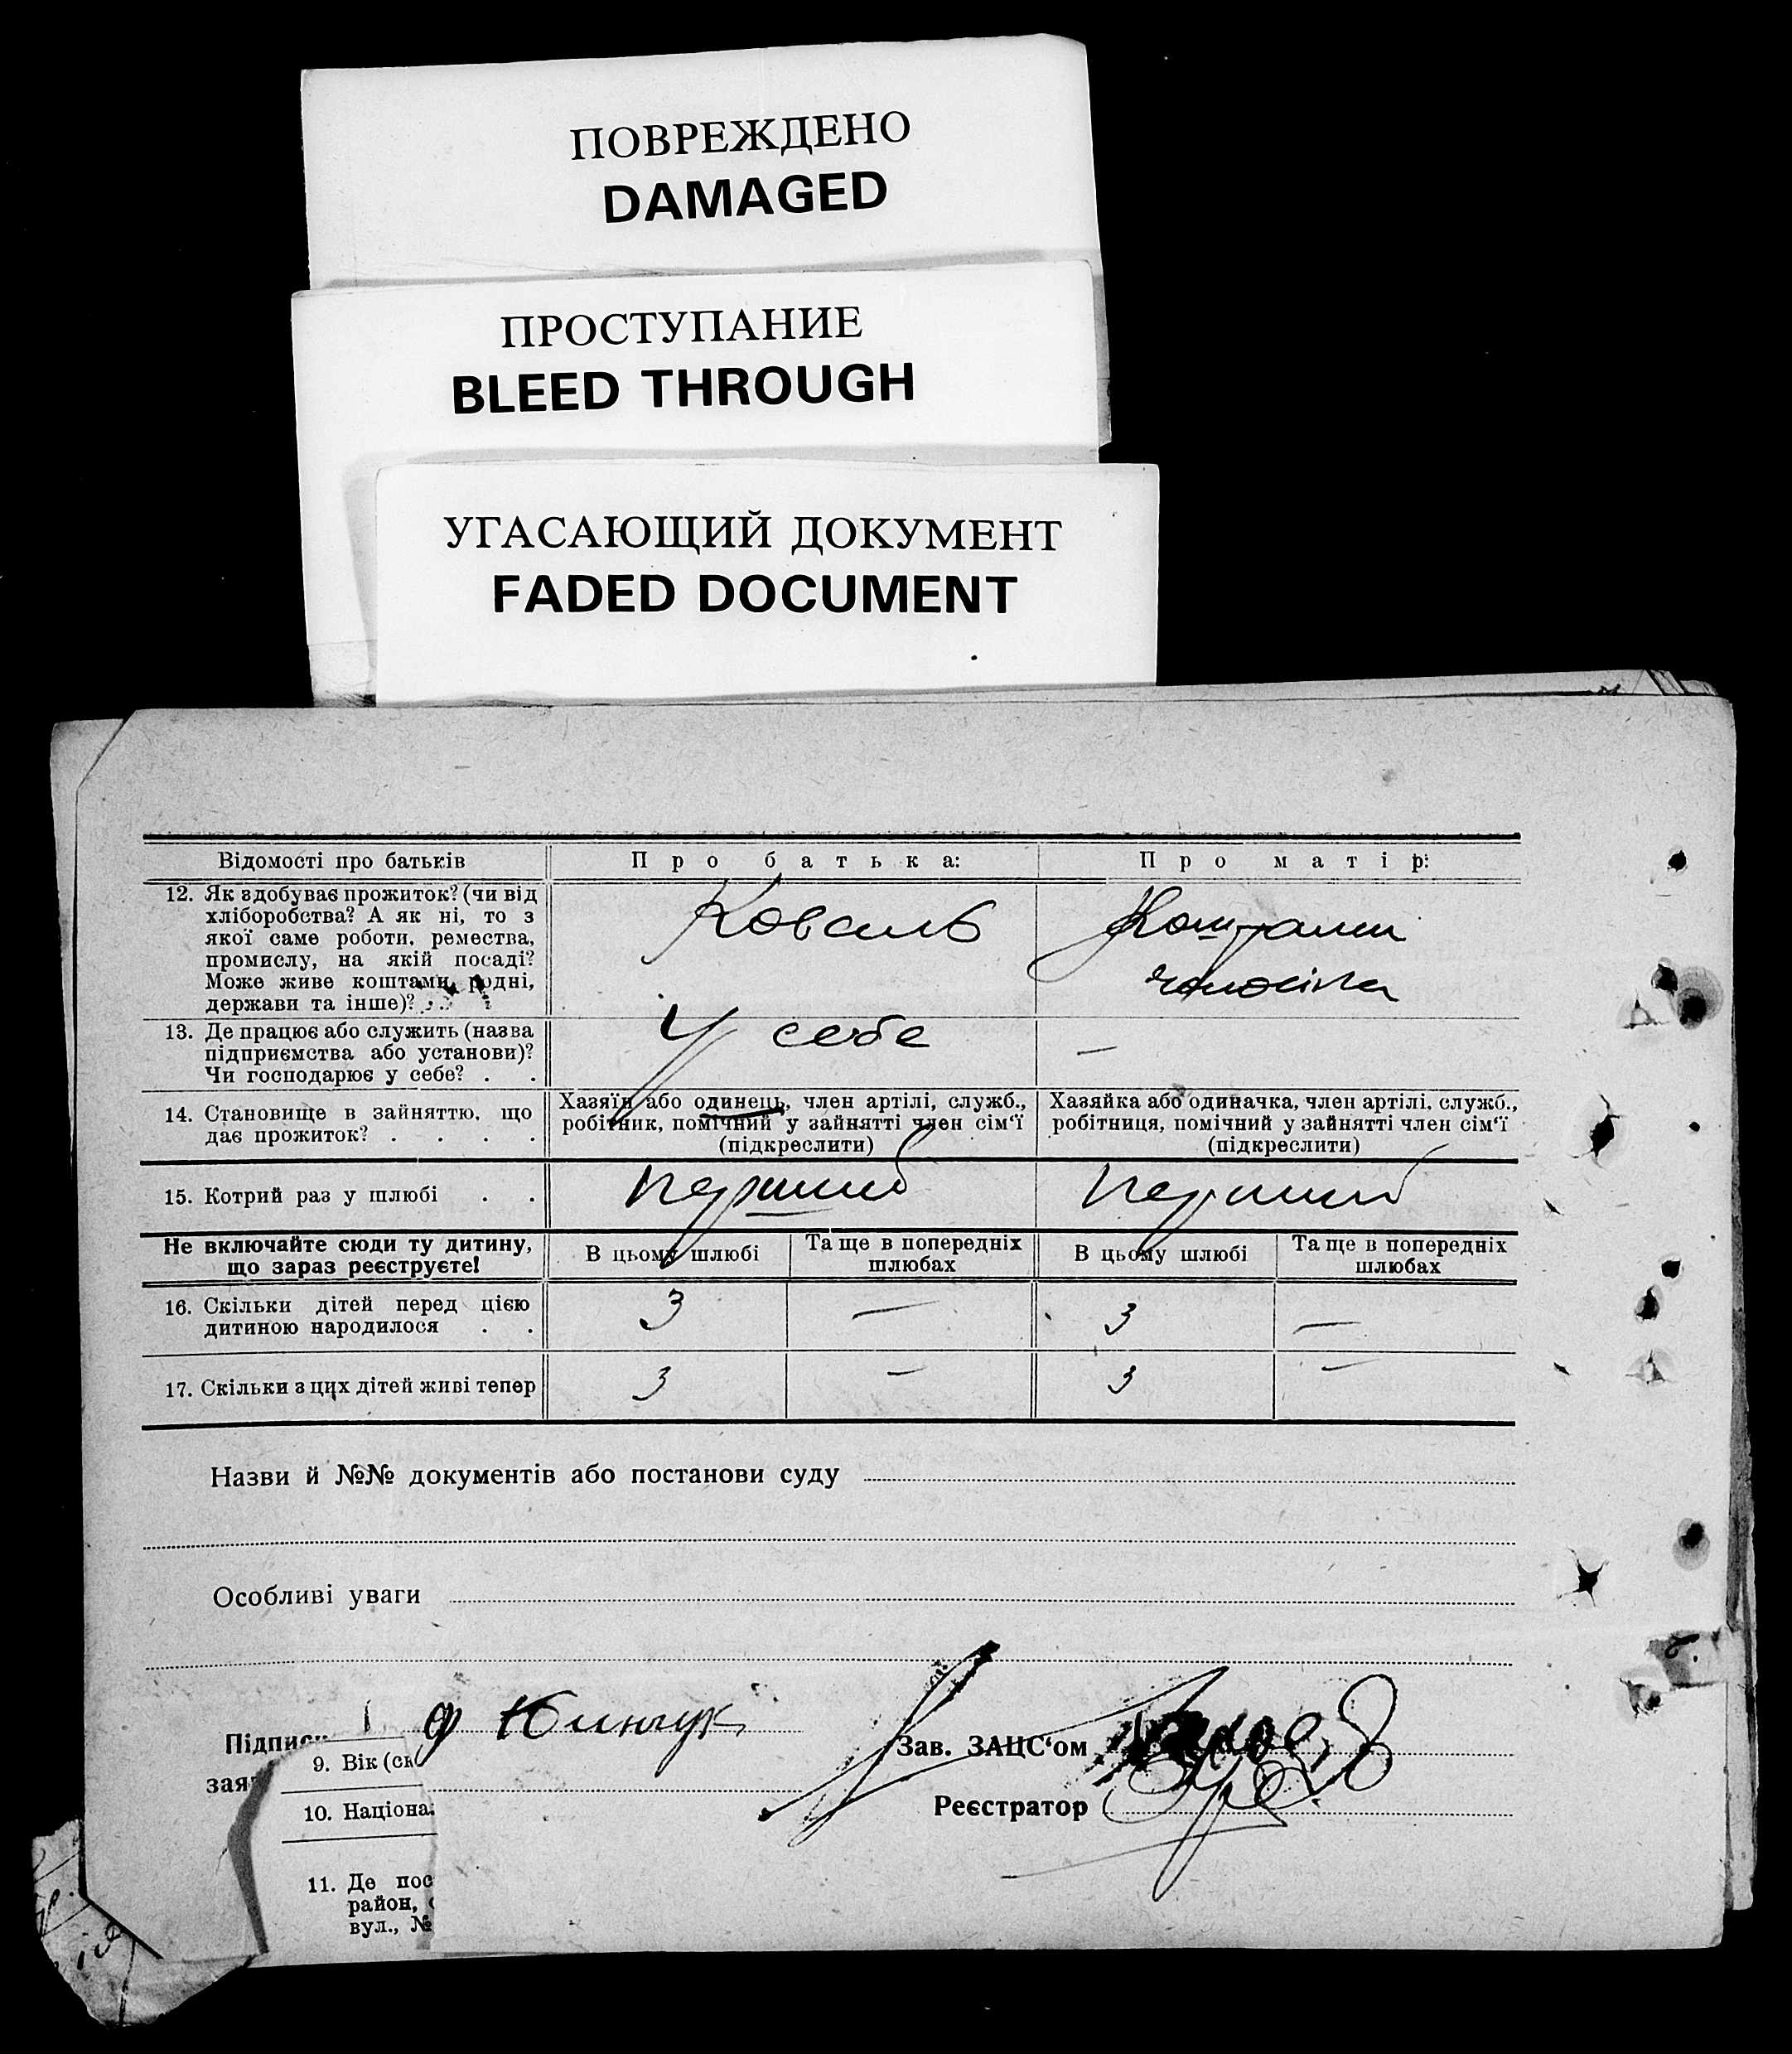 ПОВРЕЖДЕНО
DAMAGED
ПРОСТУПАНИЕ
BLEED THROUGH
УГАСАЮЩИЙ ДОКУМЕНТ
FADED DOCUMENT
Відомості про батьків
Про батька:
Про матір:
12. Як здобуває прожиток? (чи від
хліборобства? А як ні, то з
якої саме роботи, ремества,
промислу, на якій посаді?
Може живе коштами родні,
держави та інше)?
Коваль
Коштами
чоловіка
13. Де працює або служить (назва
підприємства або установи)?
Чи господарює у себе? . .
У себе
—
14. Становище в зайняттю, що
дає прожиток? . . . .
Хазяїн або одинець, член артілі, служб.,
робітник, помічний у зайнятті член сім‘ї
(підкреслити)
Хазяйка або одиначка, член артілі, служб.,
робітниця, помічний у зайнятті член сім‘ї
(підкреслити)
15. Котрий раз у шлюбі . .
перший
перший
Не включайте сюди ту дитину,
що зараз реєструєте!
В цьому шлюбі
Та ще в попередніх
шлюбах
В цьому шлюбі
Та ще в попередніх
шлюбах
16. Скільки дітей перед цією
дитиною народилося . .
3 — 3 —
17. Скільки з цих дітей живі тепер
3 — 3 —
Назви й №№ документів або постанови суду
Особливі уваги
Підписи
зая
Зав. ЗАЦС‘ом
Реєстратор
9. Вік (ск
10. Націона
11. Де пос
район,
вул., №